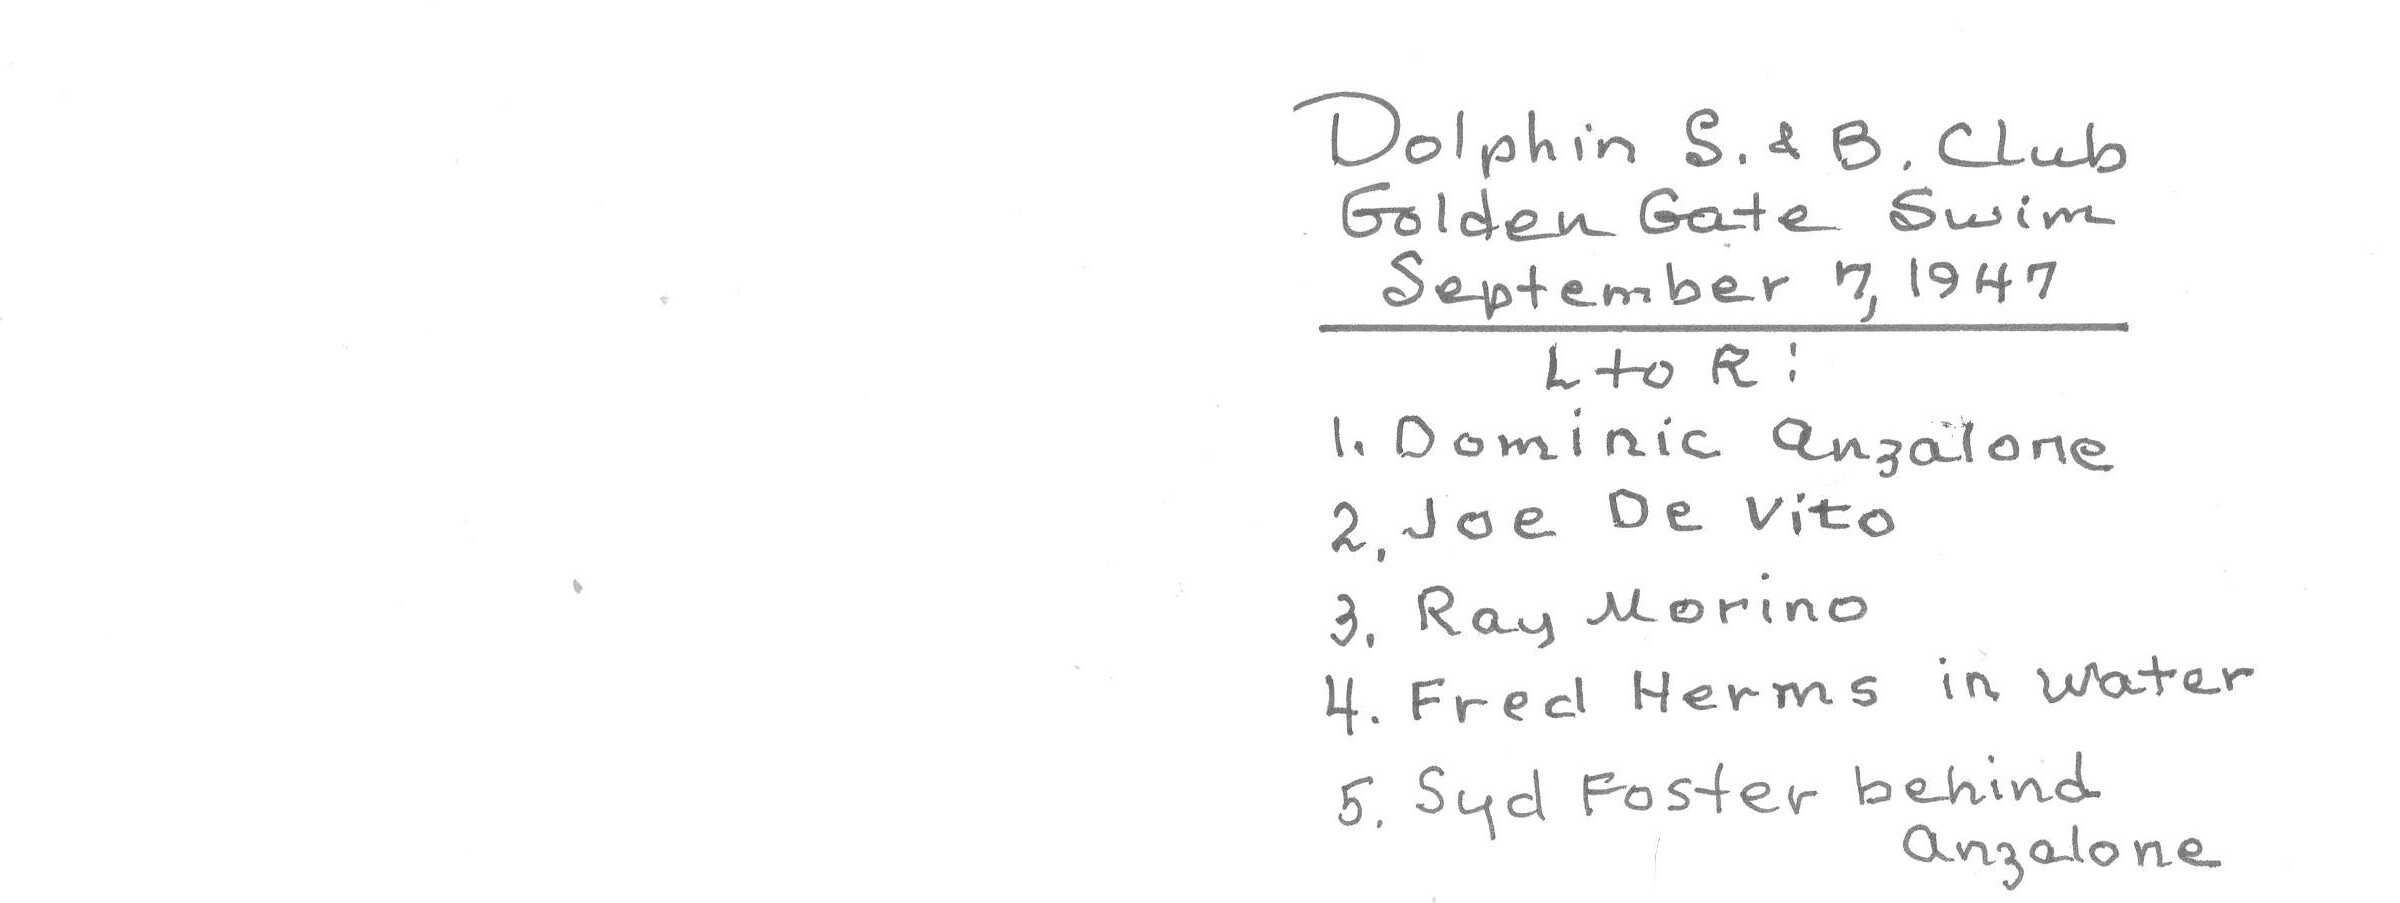 Dolphin S. & B. Club
Golden Gate Swim
September 7, 1947
L to R:
1. Dominic Anzalone
2. Joe De Vito
3. Ray Morino
4. Fred Herms in water
5. Syd Foster behind
Anzalone